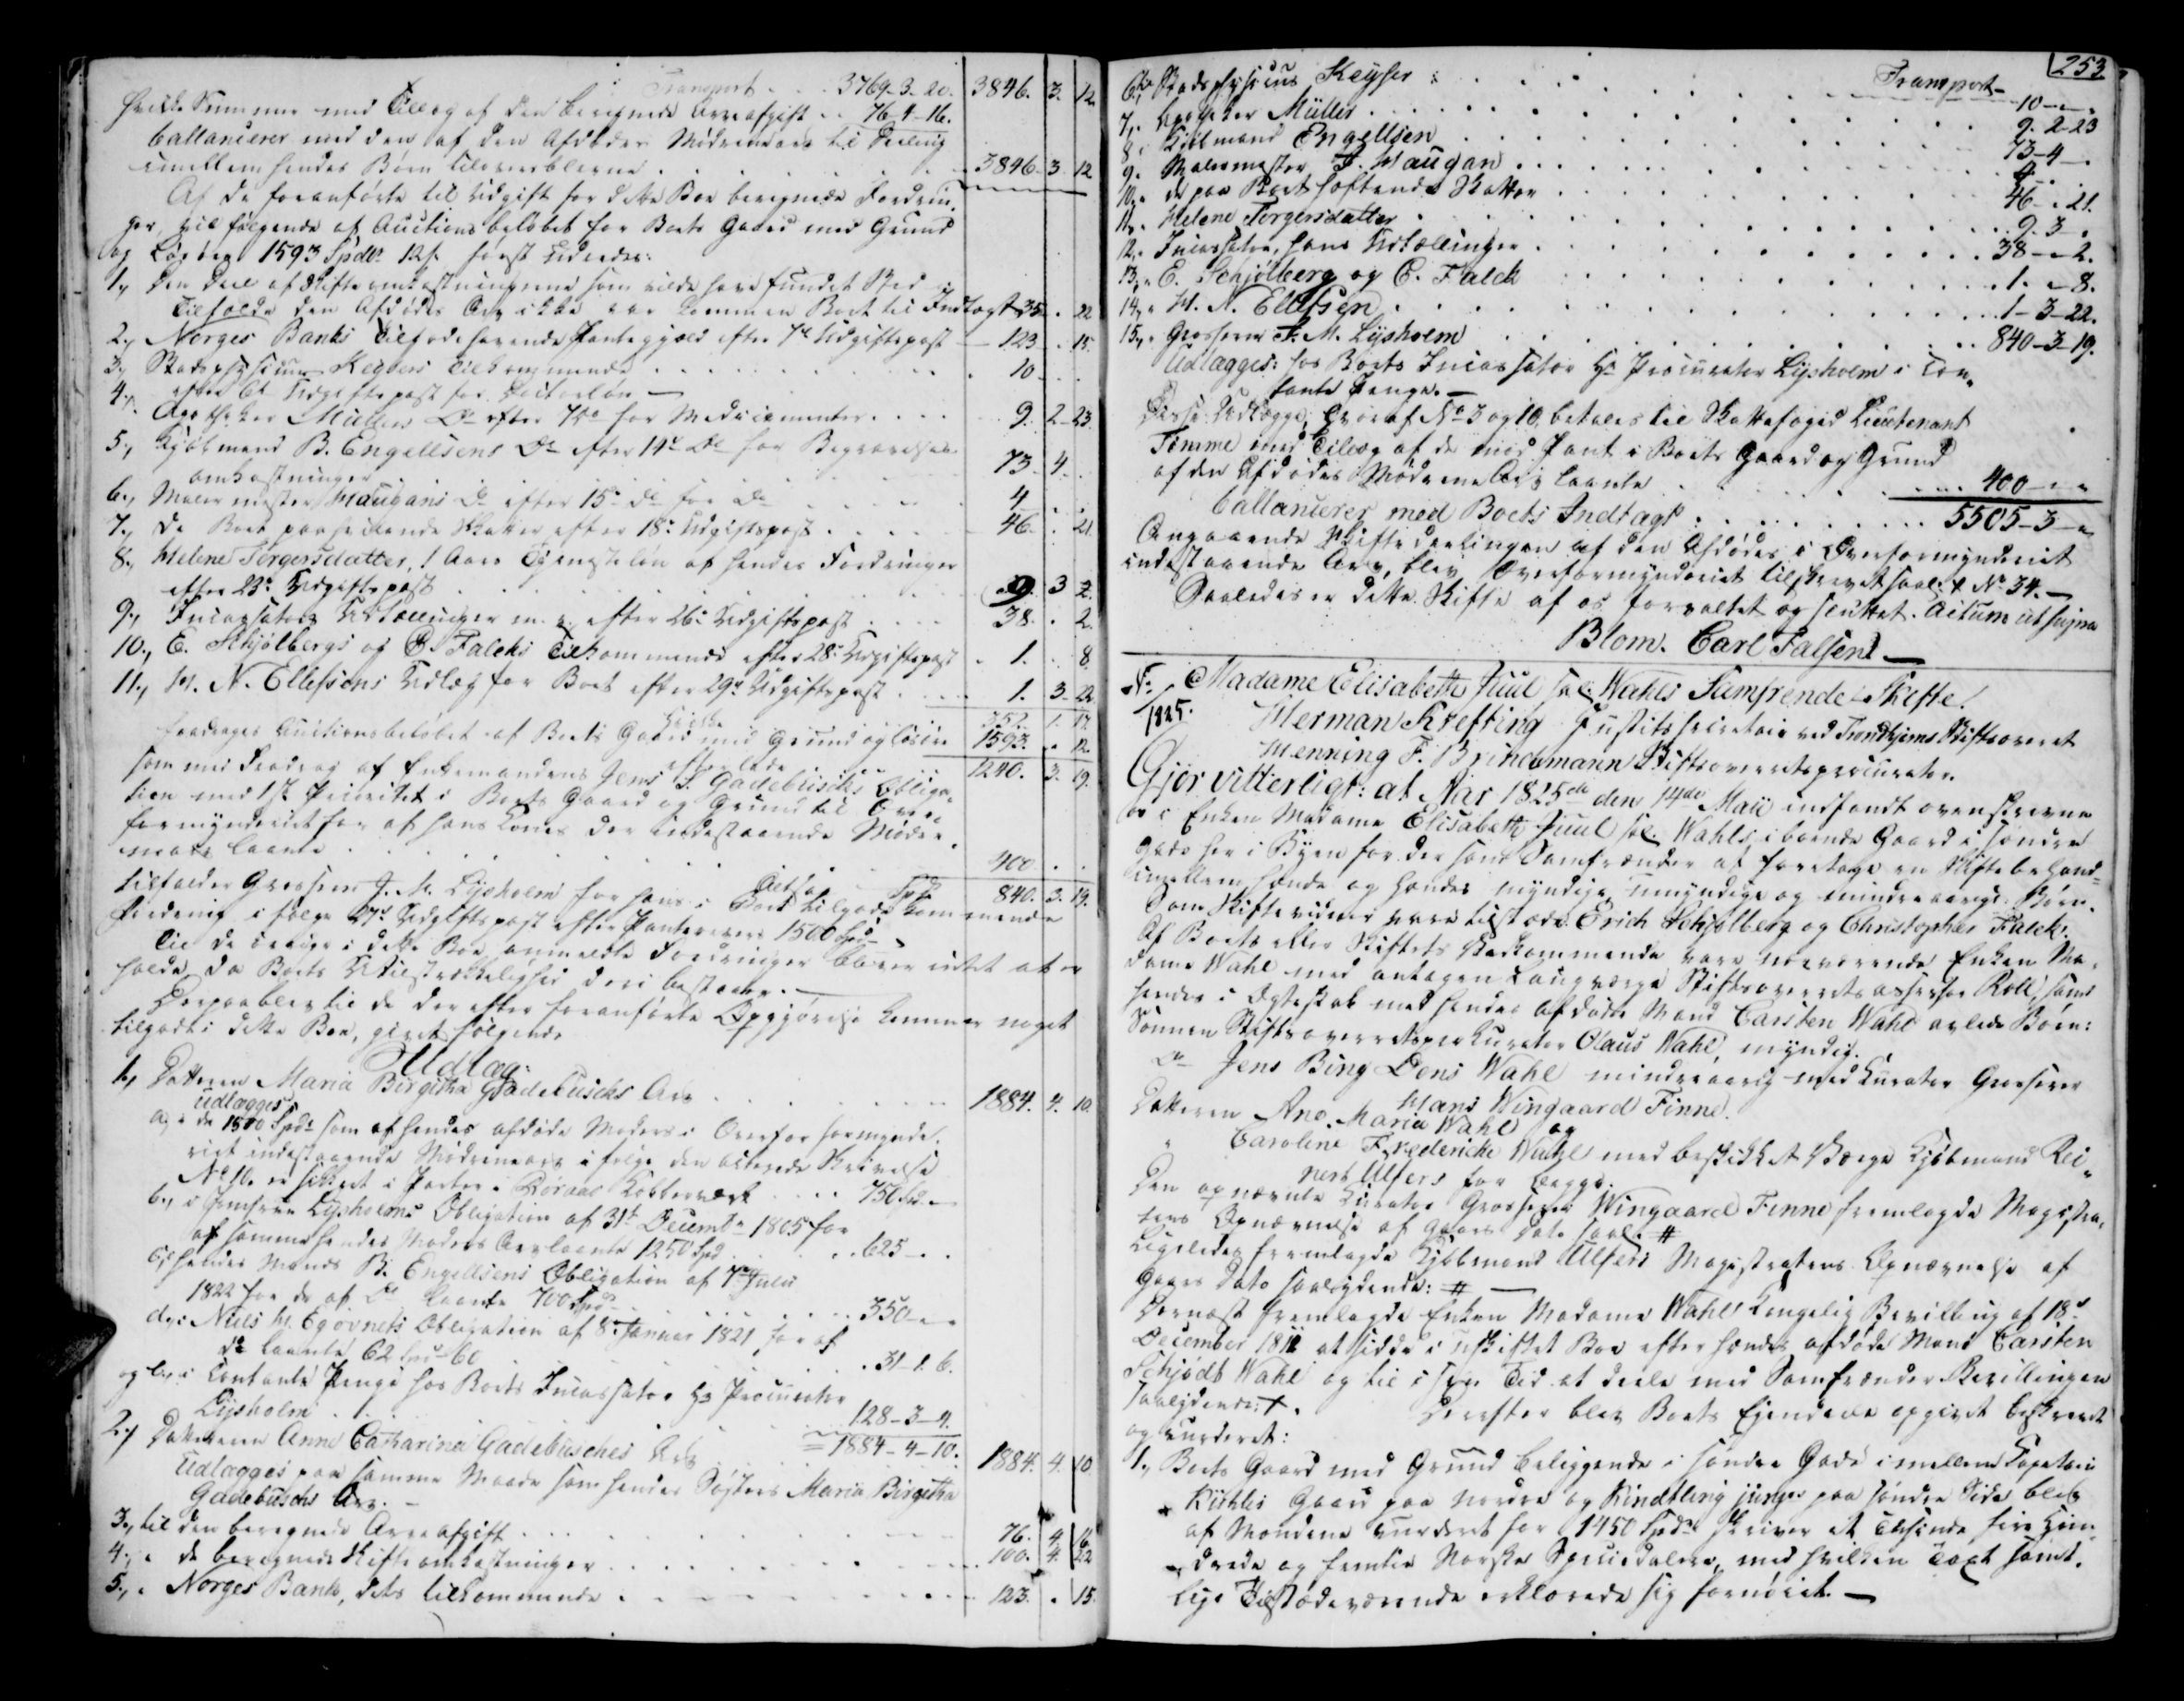 Transport . . 3769-3-20. 3846. 3. 12
hvilke Summer med Tillæg af den beregnede Arveafgift . . 76-4-16.
ballancerer med den af den Afdødes Mødrenearv til Deeling
imellem hendes Børn tiloversblevne . . . 3846. 3. 12
Af de foranførte til Udgift for dette Boe beregnede Fordrin-
ger, vil følgende af Auctionsbeløbet for Boets Gaard med Grund
og Løsøre 1593 Spdlr 12 s. først udredes:
1., Den Deel af Skifteomkostningerne som vilde have fundet Sted i
Tilfælde den Afdødes Arv ikke var kommen Boet til Indtægt 35. . 22
2., Norges Banks tilgodehavende Pantegjæld efter 7de Udgiftspost 123. . 15.
3., Stadsphysicus Keysers tilkommende . . . 10 . .
efter 6te Udgiftspost for Doctorløn —
4., Apotheker Müllers Do efter 7de for Medicamenter . . 9. 2. 23.
5., Kjøbmand B. Engellsens Do efter 14de Do for Begravelses-
omkostninger . . . 73. 4. .
6., Malermester Haugans Do efter 15de do for Do . . . 4 . .
7., De Boet paaheftende Skatter efter 18de Udgiftspost . . . 46. . 21.
8., Helene Torgersdatter, 1 Aars Tjenesteløn af hendes Fordringer
efter 23de Udgiftspost . . . 9. 3 2.
9., Incassators Udtællinger m. v. efter 26de Udgiftspost . . . 38. . 2.
10., E. Schjølbergs og C. Falcks tilkommende efter 28de Udgiftspost . 1. . 8.
11., H. N. Ellefsens Udlæg for Boet efter 29de Udgiftspost . . . 1. 3. 22
hvilke 352. 1. 17.
fradrages Auctionsbeløbet af Boets Gaard med Grund og Løsøre 1593. . 12.
efterlade . . . 1240. 3. 19.
som med Fradrag af Enkemandens Jens S. Gadebuschs Obliga-
tion med 1st Prioritet i Boets Gaard og Grund til Over-
formynderiet for af hans Kones der indestaaende Mødre-
nearv laante . . . 400 . .
Altsaa Spd. 840. 3. 19.
tilfalder Grosserer J. M. Lysholm for hans i Boet tilgode kommende
Fordring i følge 27de Udgiftspost efter Panterever 1500 Spd.
Til de øvrige i dette Boe anmeldte Fordringer bliver intet at er-
holde, da Boets Utilstrækkelighed deri bestaaer. —
Derpaa blev til de der efter foranførte Opgjørelse kommer noget
tilgode i dette Boe, giort følgende
Udlæg:
1., Datteren Maria Birgitha Gadebuschs Arv . . . 1884. 4. 10.
Udlægges
a, i de 1500 Spd som af hendes afdøde Moders i Overformynde-
riet indestaaende Mødrenearv i følge den acterede Skrivelse
No 10. er sikkret i Parter i Røraas Kobberværk . . . 750 Spd. —
b., i Jomfrue Lysholms Obligation af 31te Decembr 1805 for
af samme hendes Moders Arv laante 1250 Spd . . . 625 — . .
c., hendes Mands B. Engellsens Obligation af 7de Julii
1822 for de af Do laante 700 Spd . . . 350 — . .
d., Niels H. Egovnets Obligation af 8de Januar 1821 for af
do laante 62 Spd 60 . . . 31-1. 6.
og e., i Contante Penge hos Boets Incassator Hr Procurator
Lysholm . . . 128-3-4.
= 1884-4-10.
2., Datteren Anne Catharina Gadebusches Arv . . . 1884. 4. 10
Udlægges paa samme Maade som hendes Søsters Maria Birgitha
Gadebuschs Arv. —
3., til den beregnede Arveafgift . . . 76. 4. 16
4., " de beregnede Skifteomkostninger . . . 100. 4. 22
5., " Norges Bank, dets tilkommende . . . 123. . 15.
253
Transport —
6te, Stadsphysicus Keyser . . . 10 — . .
7., Apotheker Müller . . . 9. 2-23
8., Kjøbmand Engellsen . . . 73-4 — .
9., Malermester F. Haugan . . . 4 . .
10., de paa Boet heftende Skatter . . . 46 — . 21.
11., Helene Torgersdatter . . . 9. 3 .
12., Incassator, hans Udtællinger . . . 38 — . 2.
13., E. Schjølberg og C. Falck . . . 1. . 8.
14., H. N. Ellefsen . . . 1-3-22.
15., Grosserer J. M. Lysholm . . . 840-3-19.
Udlægges: hos Boets Incassator Hr Procurator Lysholm i Con-
tante Penge. —
Disse Udlægge, hvoraf No 3 og 10, betales til Skattefoged Lieutenant
Tømme med Tillæg af de mod Pant i Boets Gaard og Grund
af den Afdødes Mødrene Arv laante . . . 400 — . .
ballancerer med Boets Indtægt . . . 5505-3 — .
Angaaende Skiftedeelingen af den Afdødes i Overformynderiet
indestaaende Arv, blev Overformynderiet tilskrevet saal. # No 34. —
Saaledes er dette Skifte af os forvaltet og sluttet. Actum ut supra
Blom. Carl Falsen —
No / 1825. Madame Elisabeth Juul sal. Wahls Samfrende-Skifte.
Herman Krefting Justitssecretair ved Trondhjems Stiftsoverret
Henning F. Brinchmann Stiftsoverretsprocurator.
Gjør vitterligt: at Aar 1825de den 14de Maii indfandt ovenskrevne
os i Enken Madame Elisabeth Juul sal. Wahls iboende Gaard i søndre
Gade her i Byen for der som Samfrænder at foretage en Skiftebehand-
imellem hende og hendes myndige, umyndige og mindreaarige Børn.
Som Skiftevidner vare tilstede Erich Schjølberg og Christopher Falck.
Af Boets eller Skiftets Vedkommende vare nærværende Enken Ma-
dame Wahl med antagen Laugværge Stiftsoverretsassessor Roll, samt
hendes i Ægteskab med hendes afdøde Mand Carsten Wahl avlede Børn:
Sønnen Stiftsoverretsprocurator Olaus Wahl, myndig.
Do Jens Bing Dons Wahl mindreaarig med Kurator Grosserer
Hans Wingaard Finne.
Datteren Ane Maria Wahl og
" Caroline Frederiche Wahl med beskikket Værge Kjøbmand Rei-
nert Ulfers for begge.
Den opnævnte Kurator Grosserer Wingaard Finne fremlagde Magistra-
tens Opnævnelse af Gaars Dato saal. #
Ligeledes fremlagde Kjøbmand Ulfers Magistratens Opnævnelse af
Gaars Dato saalydende: # —
Dernæst fremlagde Enken Madame Wahl Kongelig Bevilling af 18de
December 1811 at sidde i uskiftet Boe efter hendes afdøde Mand Carsten
Schjødt Wahl og til i sin Tid at deele med Samfrænder Bevillingen
saalydende: +. Derefter blev Boets Eyendeele opgivet beskrevet
og vurderet:
1., Boets Gaard med Grund beliggende i søndre Gade imellem Capitain
Kühles Gaard paa nordre og Kindtling junges paa søndre Side blev
af Mændene vurderet for 1450 Spd. skriver et Tusinde fire Hun-
drede og femtie Norske Speciedaler, med hvilken Taxt samt-
lige Tilstædeværende erklærede sig fornøiet. —